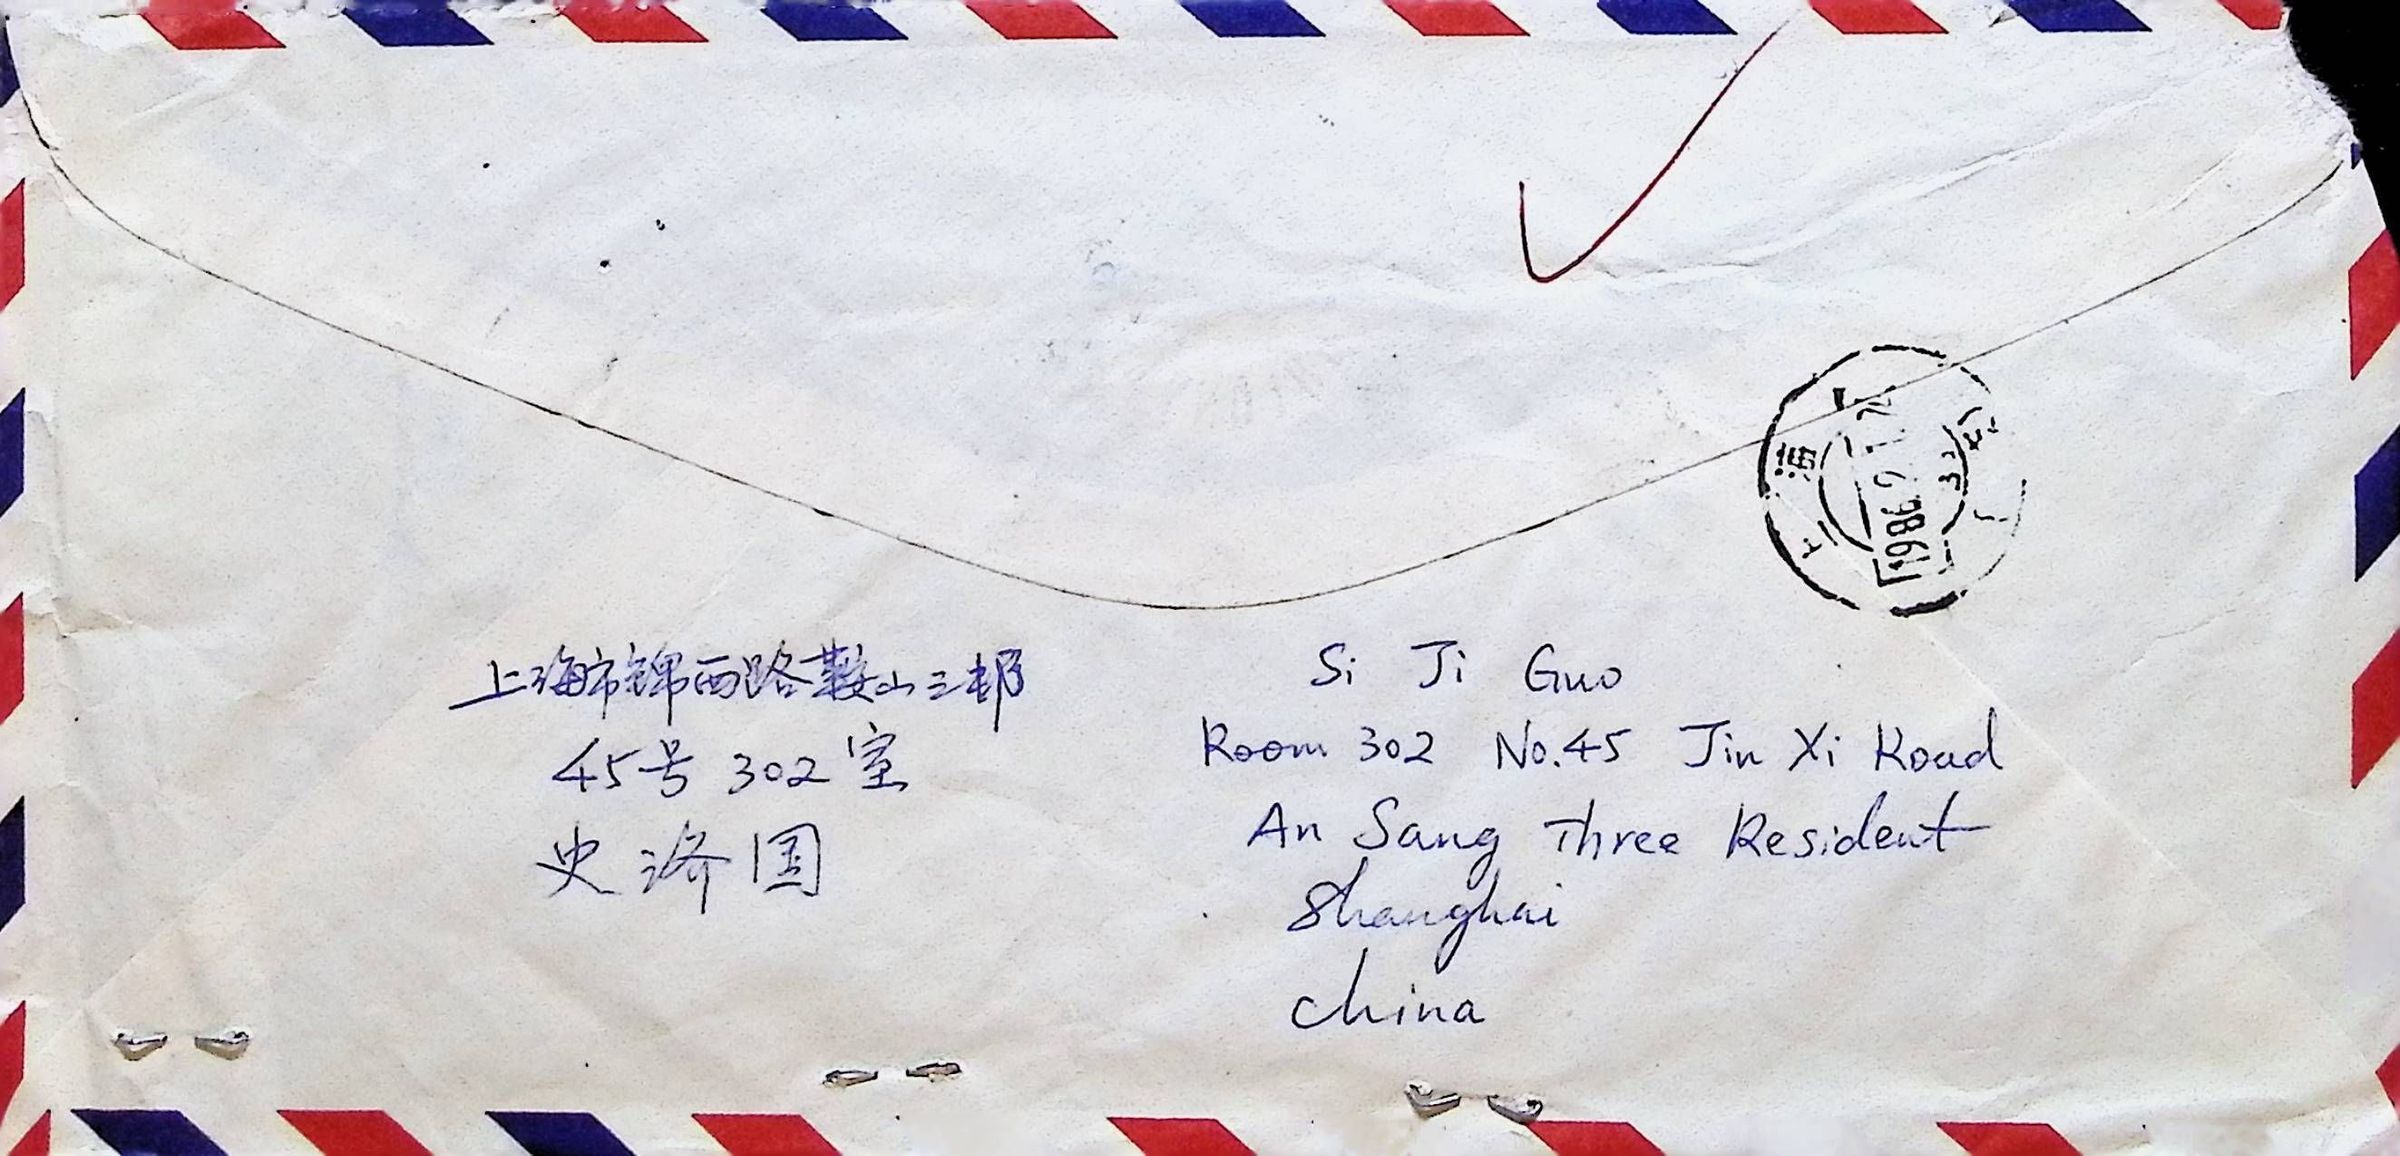 上海
1986
上海市锦西路鞍山三邨
45号 302室
史济国
Si Ji Guo
Room 302 No.45 Jin Xi Road
An Sang Three Resident
Shanghai
China